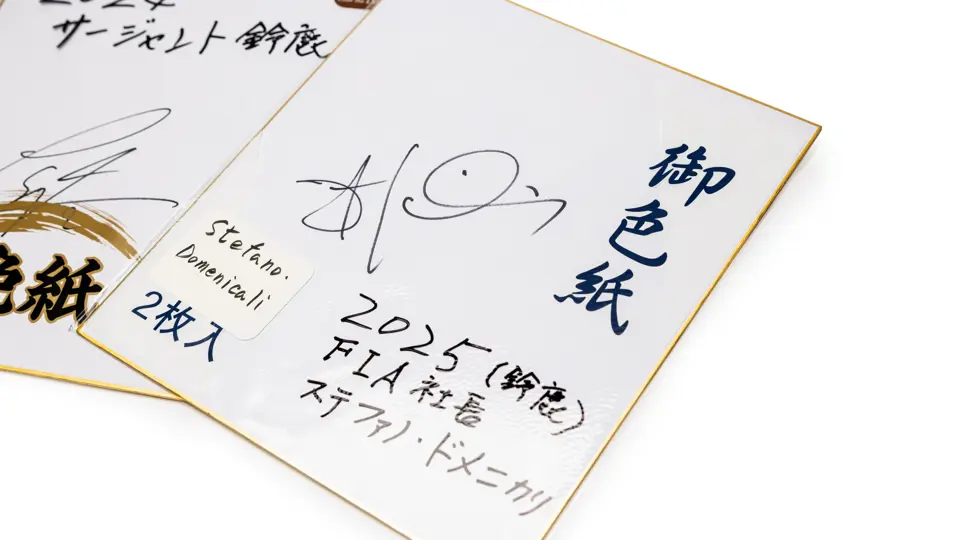 2024
サージャント鈴鹿
色紙
御色紙
Stefano.
Domenicali
2枚入
2025(鈴鹿)
FIA社長
ステファノ・ドメニカリ